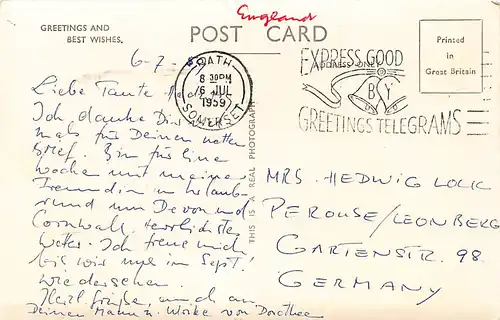 England
GREETINGS AND
BEST WISHES.
POST CARD
Printed
in
Great Britain
BATH
8 30PM
6 JUL
1959
SOMERSET
EXPRESS GOOD
ADDRESS ONLY
BY
GREETINGS TELEGRAMS
THIS IS A REAL PHOTOGRAPH
6-7-59
Liebe Tante
Ich danke Dir
mals für Deinen netten
Brief. Bin für eine
Woche mit meiner
Freundin in Urlaub-
rund um Devon und
Cornwall. Herrlichstes
Wetter. Ich freue mich
bis wir uns im Sept!
wiedersehen.
Herzl. Grüße, auch an
Deinen Mann u. Ulrike von Dorothee
MRS. HEDWIG
PEROUSE/LEONBERG
GARTENSTR. 98
GERMANY